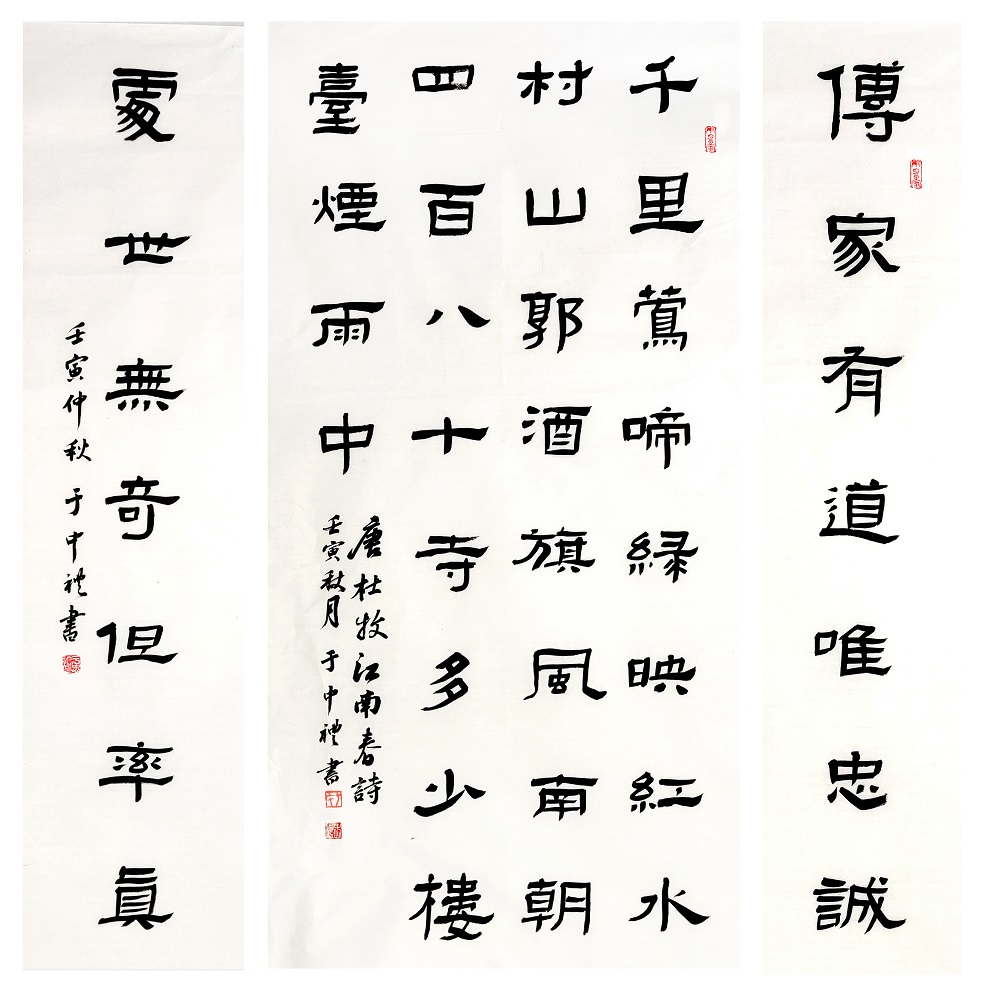 傳家有道唯忠誠
千里鶯啼緑映紅水
村山郭酒旗風南朝
四百八十寺多少樓
臺煙雨中
唐杜牧江南春詩
壬寅秋月 于中禮書
處世無奇但率眞
壬寅仲秋 于中禮書